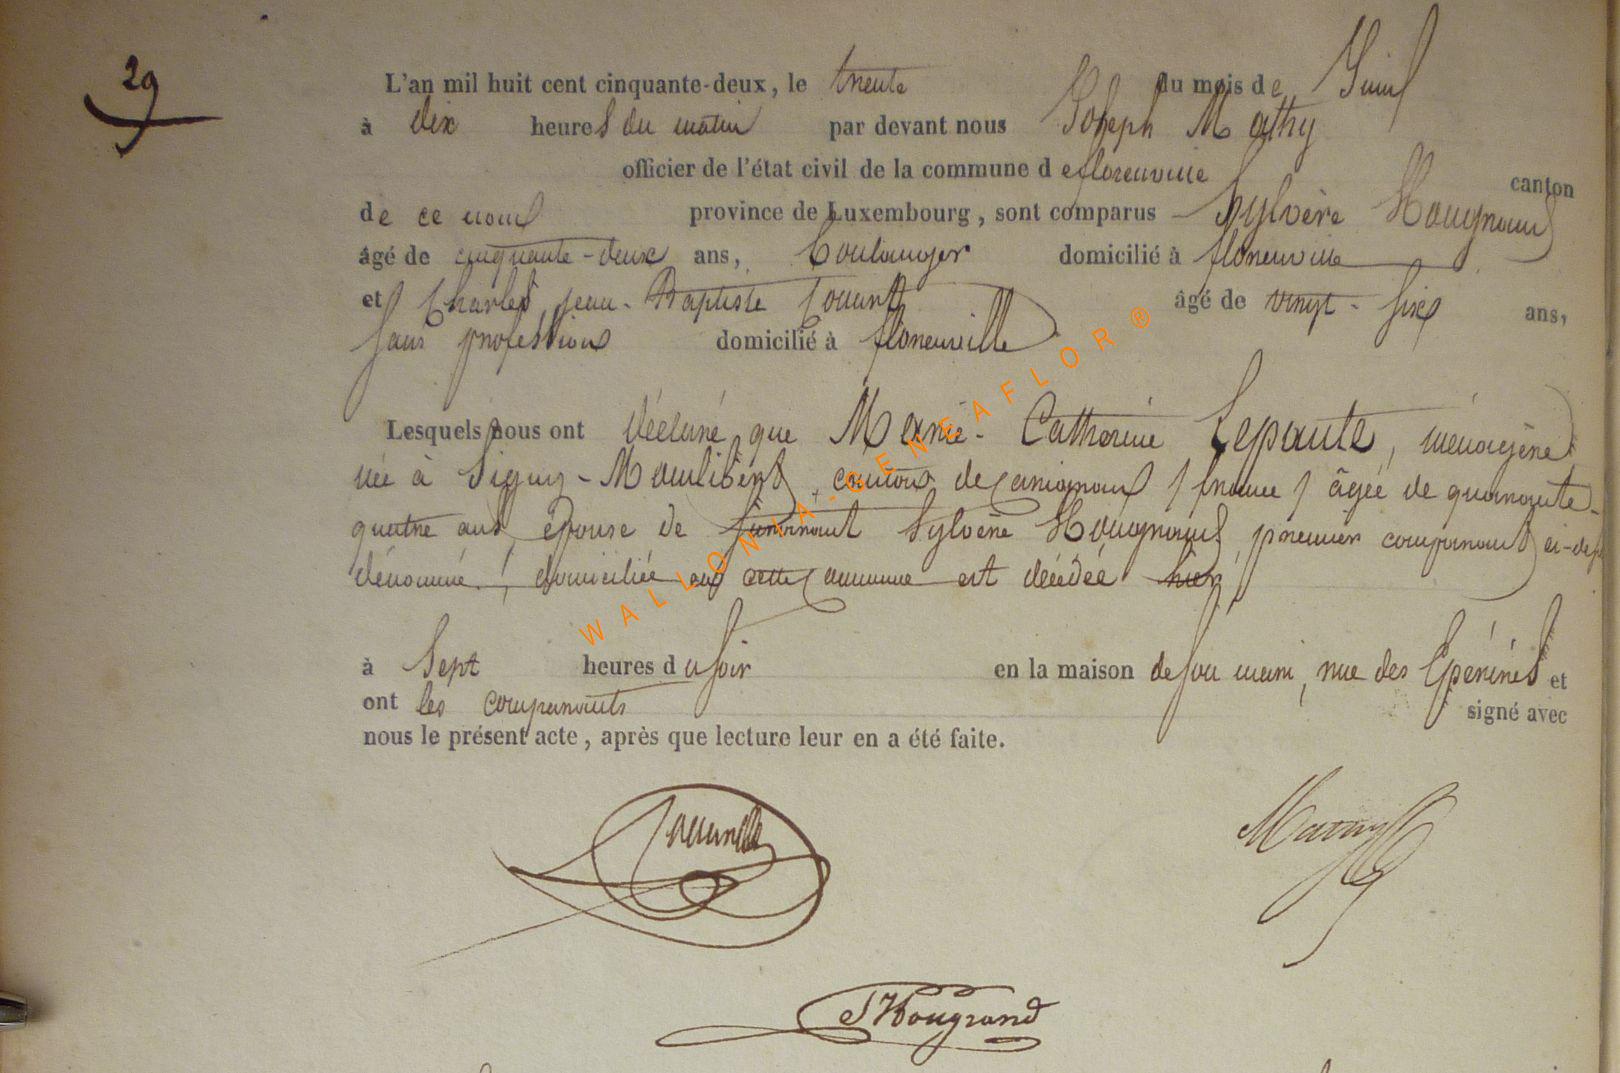 29
L'an mil huit cent cinquante-deux, le trente du mois de Juin
à dix heures du matin par devant nous Joseph Mathy
officier de l'état civil de la commune de florenville canton
de ce nom province de Luxembourg, sont comparus Sylvère Hougnand
âgé de cinquante-deux ans, boulanger domicilié à florenville
et Charles, jean-Baptiste âgé de vingt-six ans,
sans profession domicilié à florenville
Lesquels nous ont déclaré que Marie-Catherine Lepaute, ménagère
née à Signy-Montlibert, canton de Carignan / france / âgée de quarante-
quatre ans épouse de Sylvère Hougnand, premier comparant ci-dessus
dénommé, domiciliée en cette commune est décédée hier,
à Sept heures du soir en la maison de son mari, rue des Epérines et
ont les comparants signé avec
nous le présent acte, après que lecture leur en a été faite.
Mathy
SHougrand
WALLONIA-GENEAFLOR®